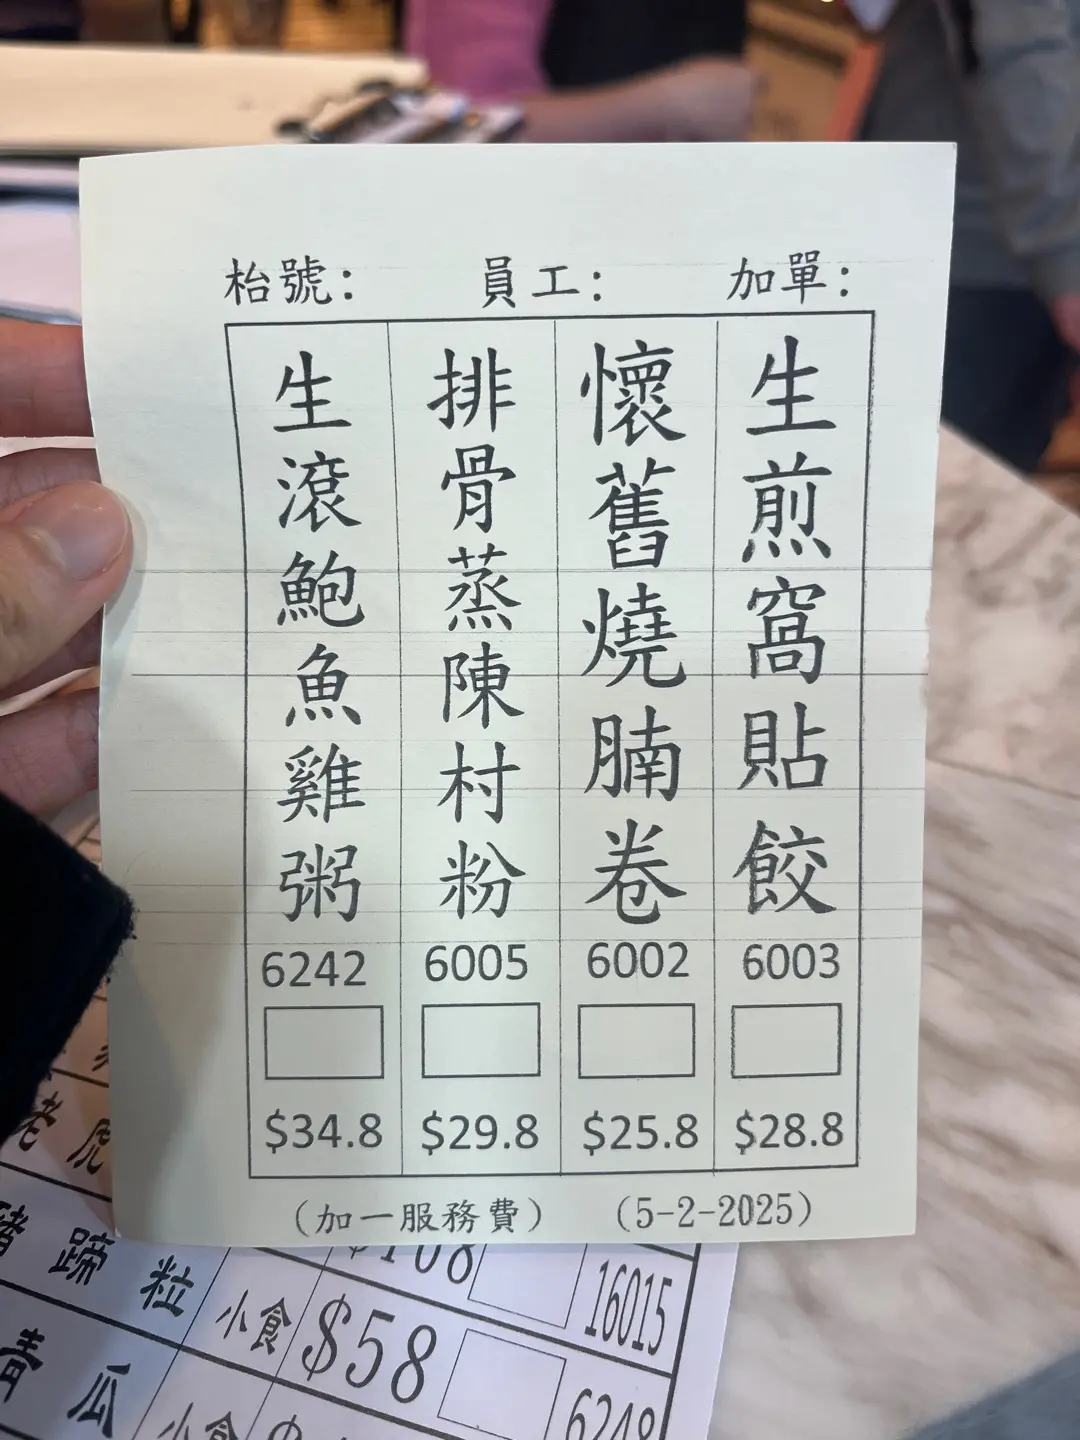 枱號：　員工：　加單：
生煎窩貼餃
6003
$28.8
懷舊燒腩卷
6002
$25.8
排骨蒸陳村粉
6005
$29.8
生滾鮑魚雞粥
6242
$34.8
（加一服務費）　（5-2-2025）
老虎
豬蹄粒
小食
$58
16015
青瓜
小食